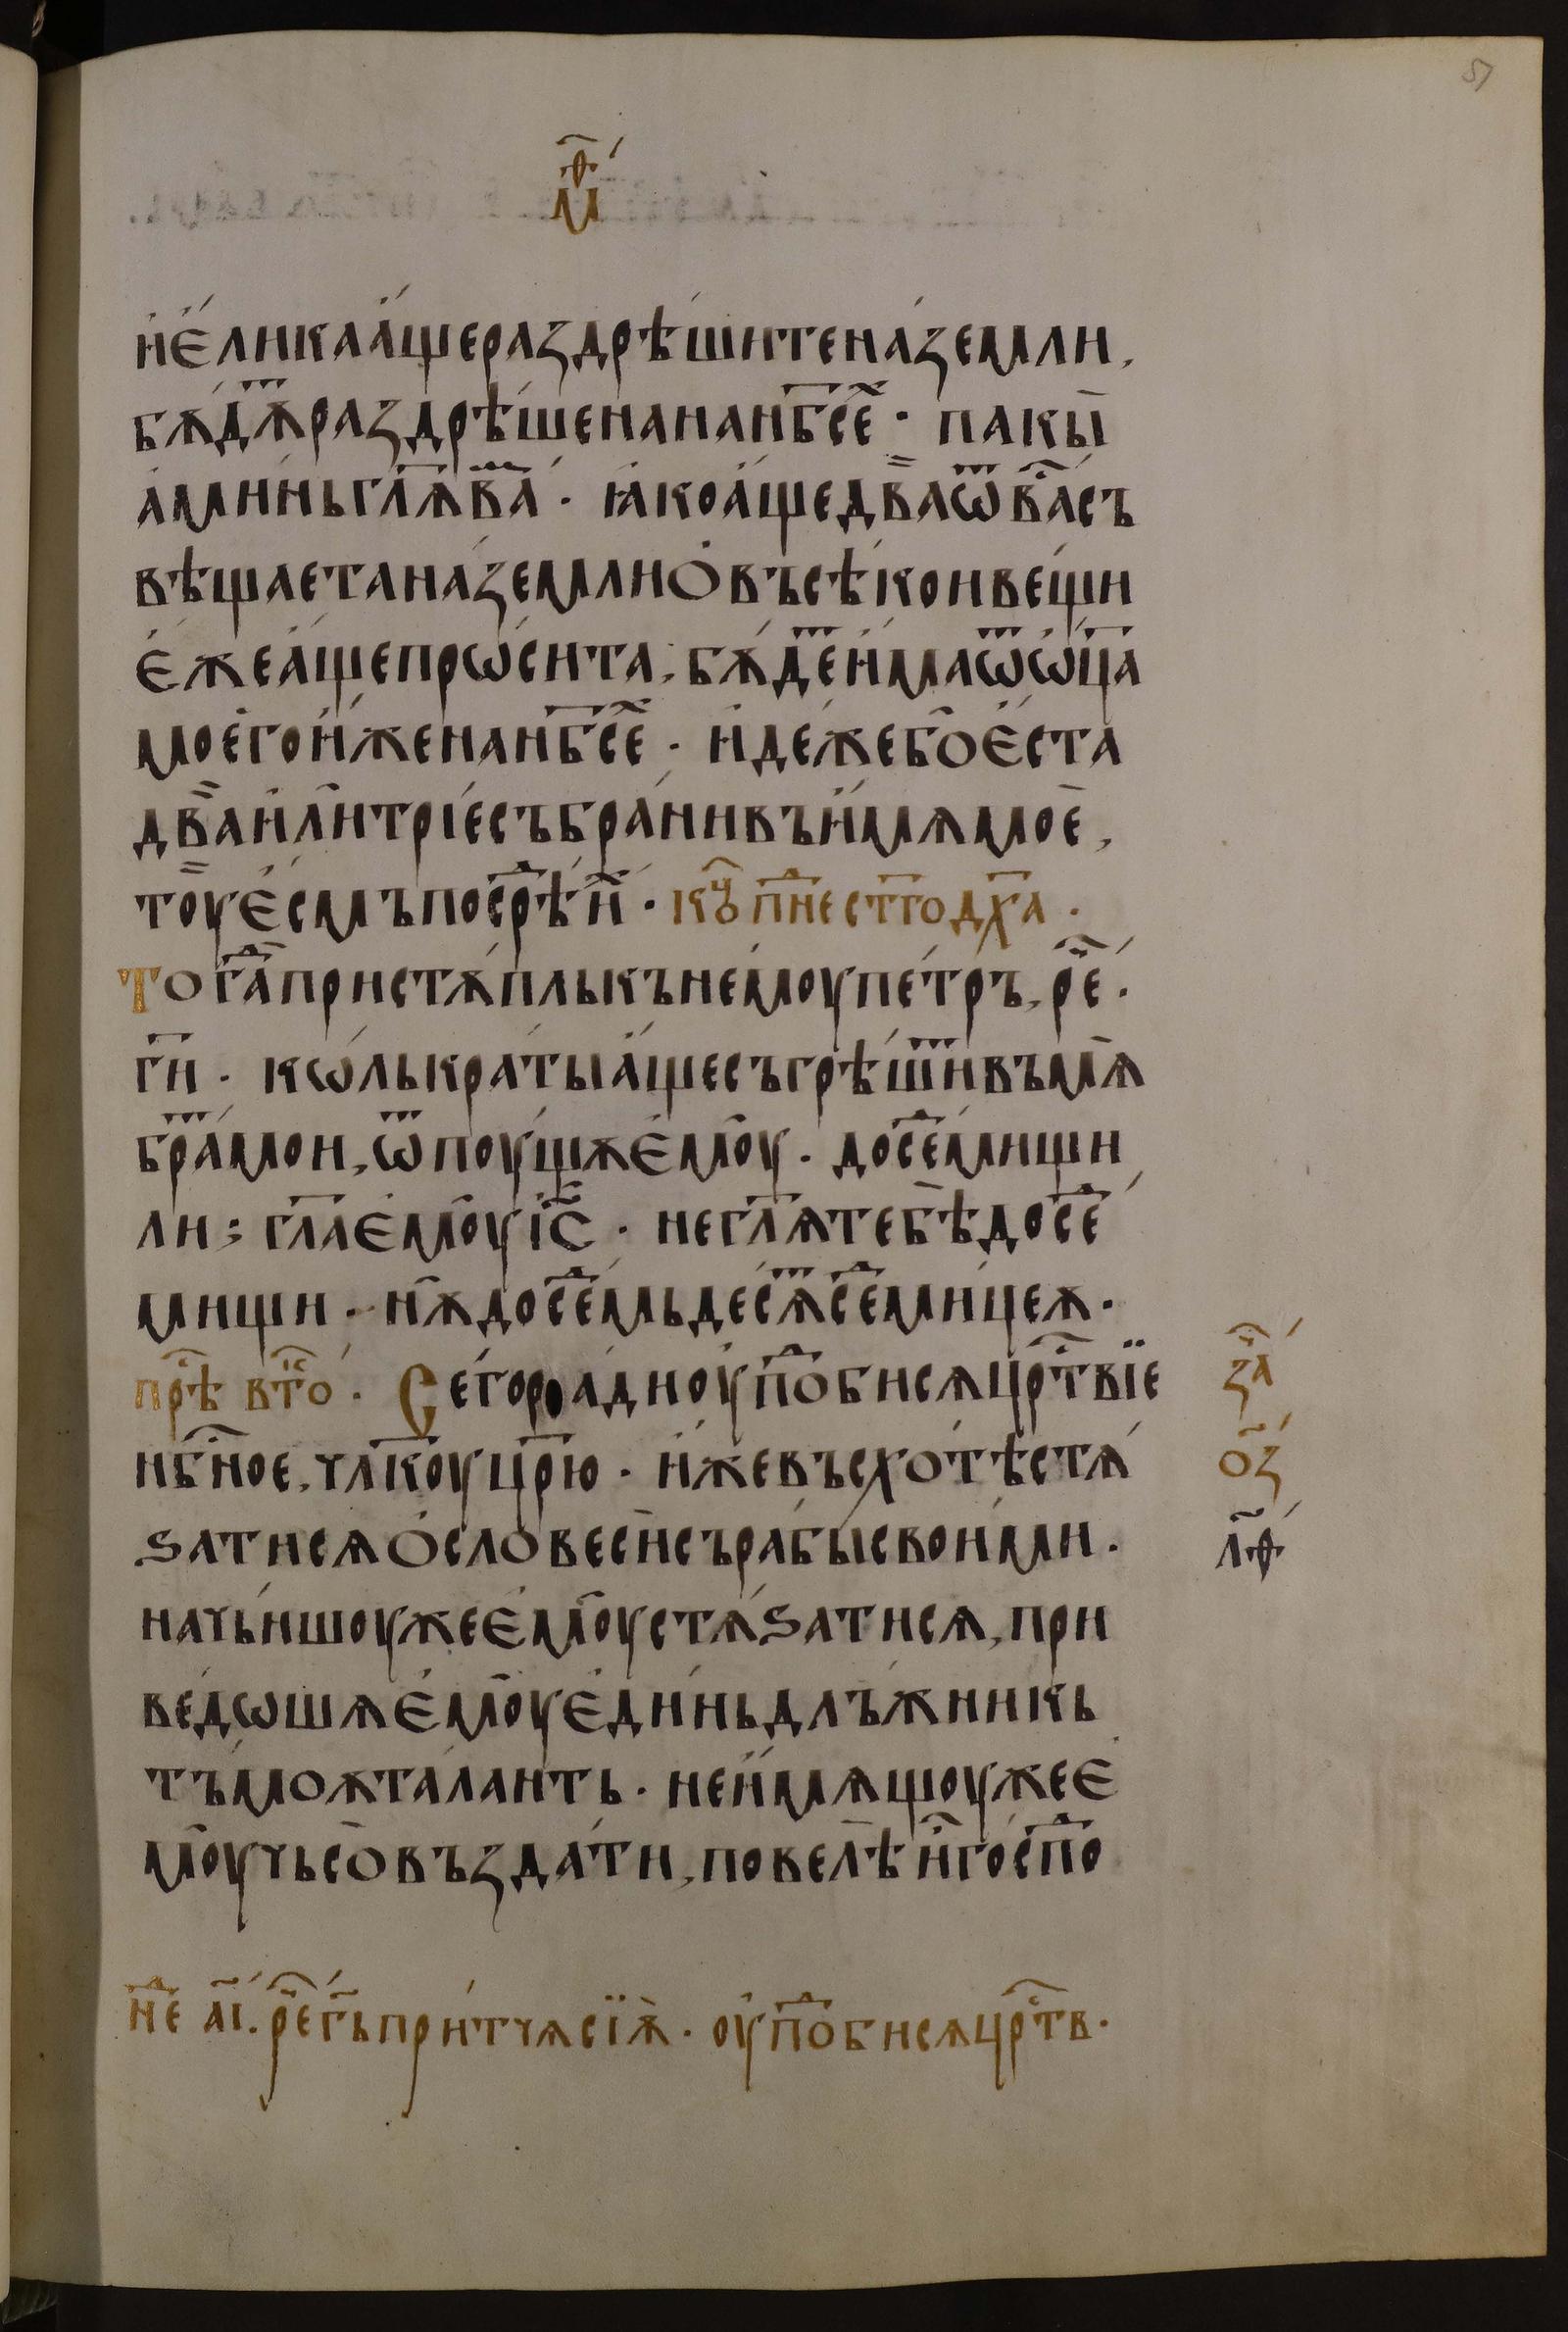 МѲ
и҆ є҆лика а҆ще раздрѣшите на земли,
бѫдѫ︮т︯ раздрѣшена на нб҃се︮х︯ · пакы
а҆минь гл҃ѫ ва︮м︯ · ꙗ҆ко а҆ще два ѿ ва︮с︯съ
вѣщаета на земли ѻ҆ въсѣкои вещи
є҆же а҆ще прѡсита, бѫде︮т︯ и҆ма ѿ ѡ҆ц҃а
моего и҆же на нб҃се︮х︯ · и҆дежебо є҆ста
два и҆ли трїе събрани въ и҆мѧ мое,
тоу є҆смъ посрѣ︮д︯ и︮х︯ · кѡ︮ц︯ пн︮д︯е ст҃го дх҃а ·
Тог︮д︯а пристѫпль къ немоу петръ, ре︮ч︯ ·
г҃и · кѡль краты а҆ще съгрѣши︮т︯ въ мѧ
бра︮т︯ мои, ѿпоущѫ є҆моу · до се︮д︯мищи
ли; гл҃а є҆моу і҃с · не гл҃ѫ тебѣ до се︮д︯
мищи · нѫ до се︮д︯мьдесѧ︮т︯ се︮д︯мицеѫ ·
прѣ︮с︯ вто︮с︯ · Сего ради оупо︮д︯бисѧ цр︮с︯твїе
нб︮с︯ное, чл҃коу цр҃ю · и҆же въсхотѣ стѧ
ѕатисѧ ѻ҆ словеси съ рабы своими ·
начьншоу же є҆моу стѧѕатисѧ, при
ведѡшѧ є҆моу є҆динь длъжникь
тъмоѫ талантъ · не и҆мѧщоу же є҆
моу чьсо въздати, повелѣ и҆ го︮с︯по
за︮ч︯
о҃з
л҃ѳ
не︮д︯ а҃і. ре︮ч︯ г҃ь притчѫ сїѫ · оупо︮д︯бисѧ цр︮с︯тв ·